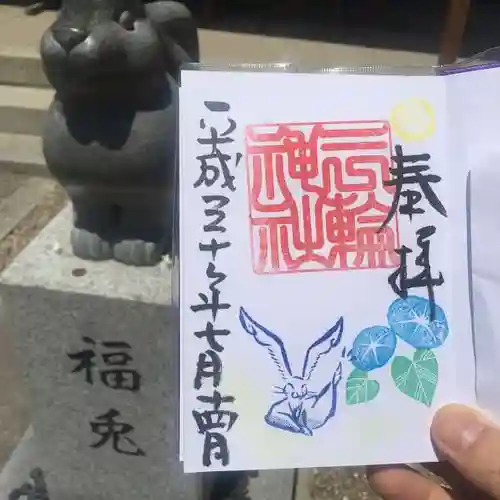 奉拝
三輪
神社
平成三十年七月十四日
福兎